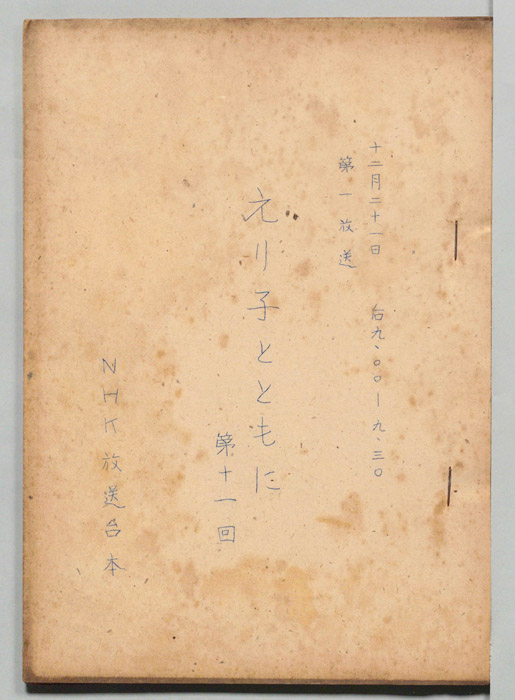 十二月二十一日　后九、〇〇ー九、三〇
第一放送
えり子とともに
第十一回
NHK放送台本